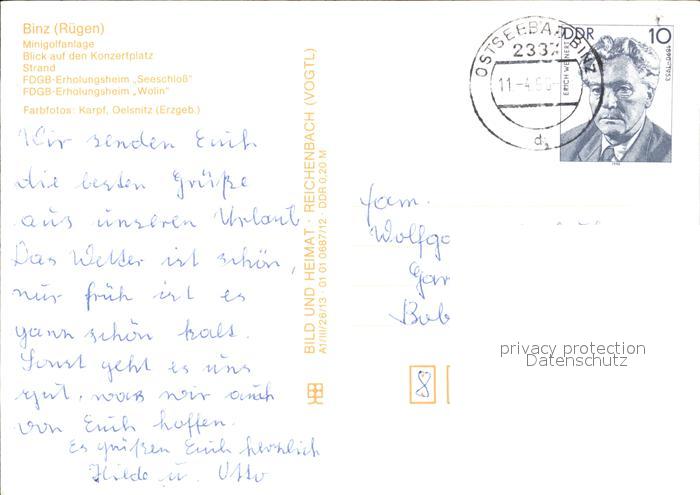 Binz (Rügen)
Minigolfanlage
Blick auf den Konzertplatz
Strand
FDGB-Erholungsheim „Seeschloß"
FDGB-Erholungsheim „Wolin"
Farbfotos: Karpf, Oelsnitz (Erzgeb.)
Wir senden Euch
die besten Grüße
aus unseren Urlaub
Das Wetter ist schön,
nur früh ist es
ganz schön kalt.
Sonst geht es uns
gut, was wir auch
von Euch hoffen.
Es grüßen Euch herzlich
Hilde u. Otto
BILD UND HEIMAT · REICHENBACH (VOGTL)
A1/III/26/13 · 01 01 0687/12 · DDR 0,20 M
OSTSEEBAD BINZ
2337
11.-4.90
d
DDR 10
ERICH WEINERT
1890-1953
1990
Fam.
Wolfga
Gar
Bob
8
privacy protection
Datenschutz